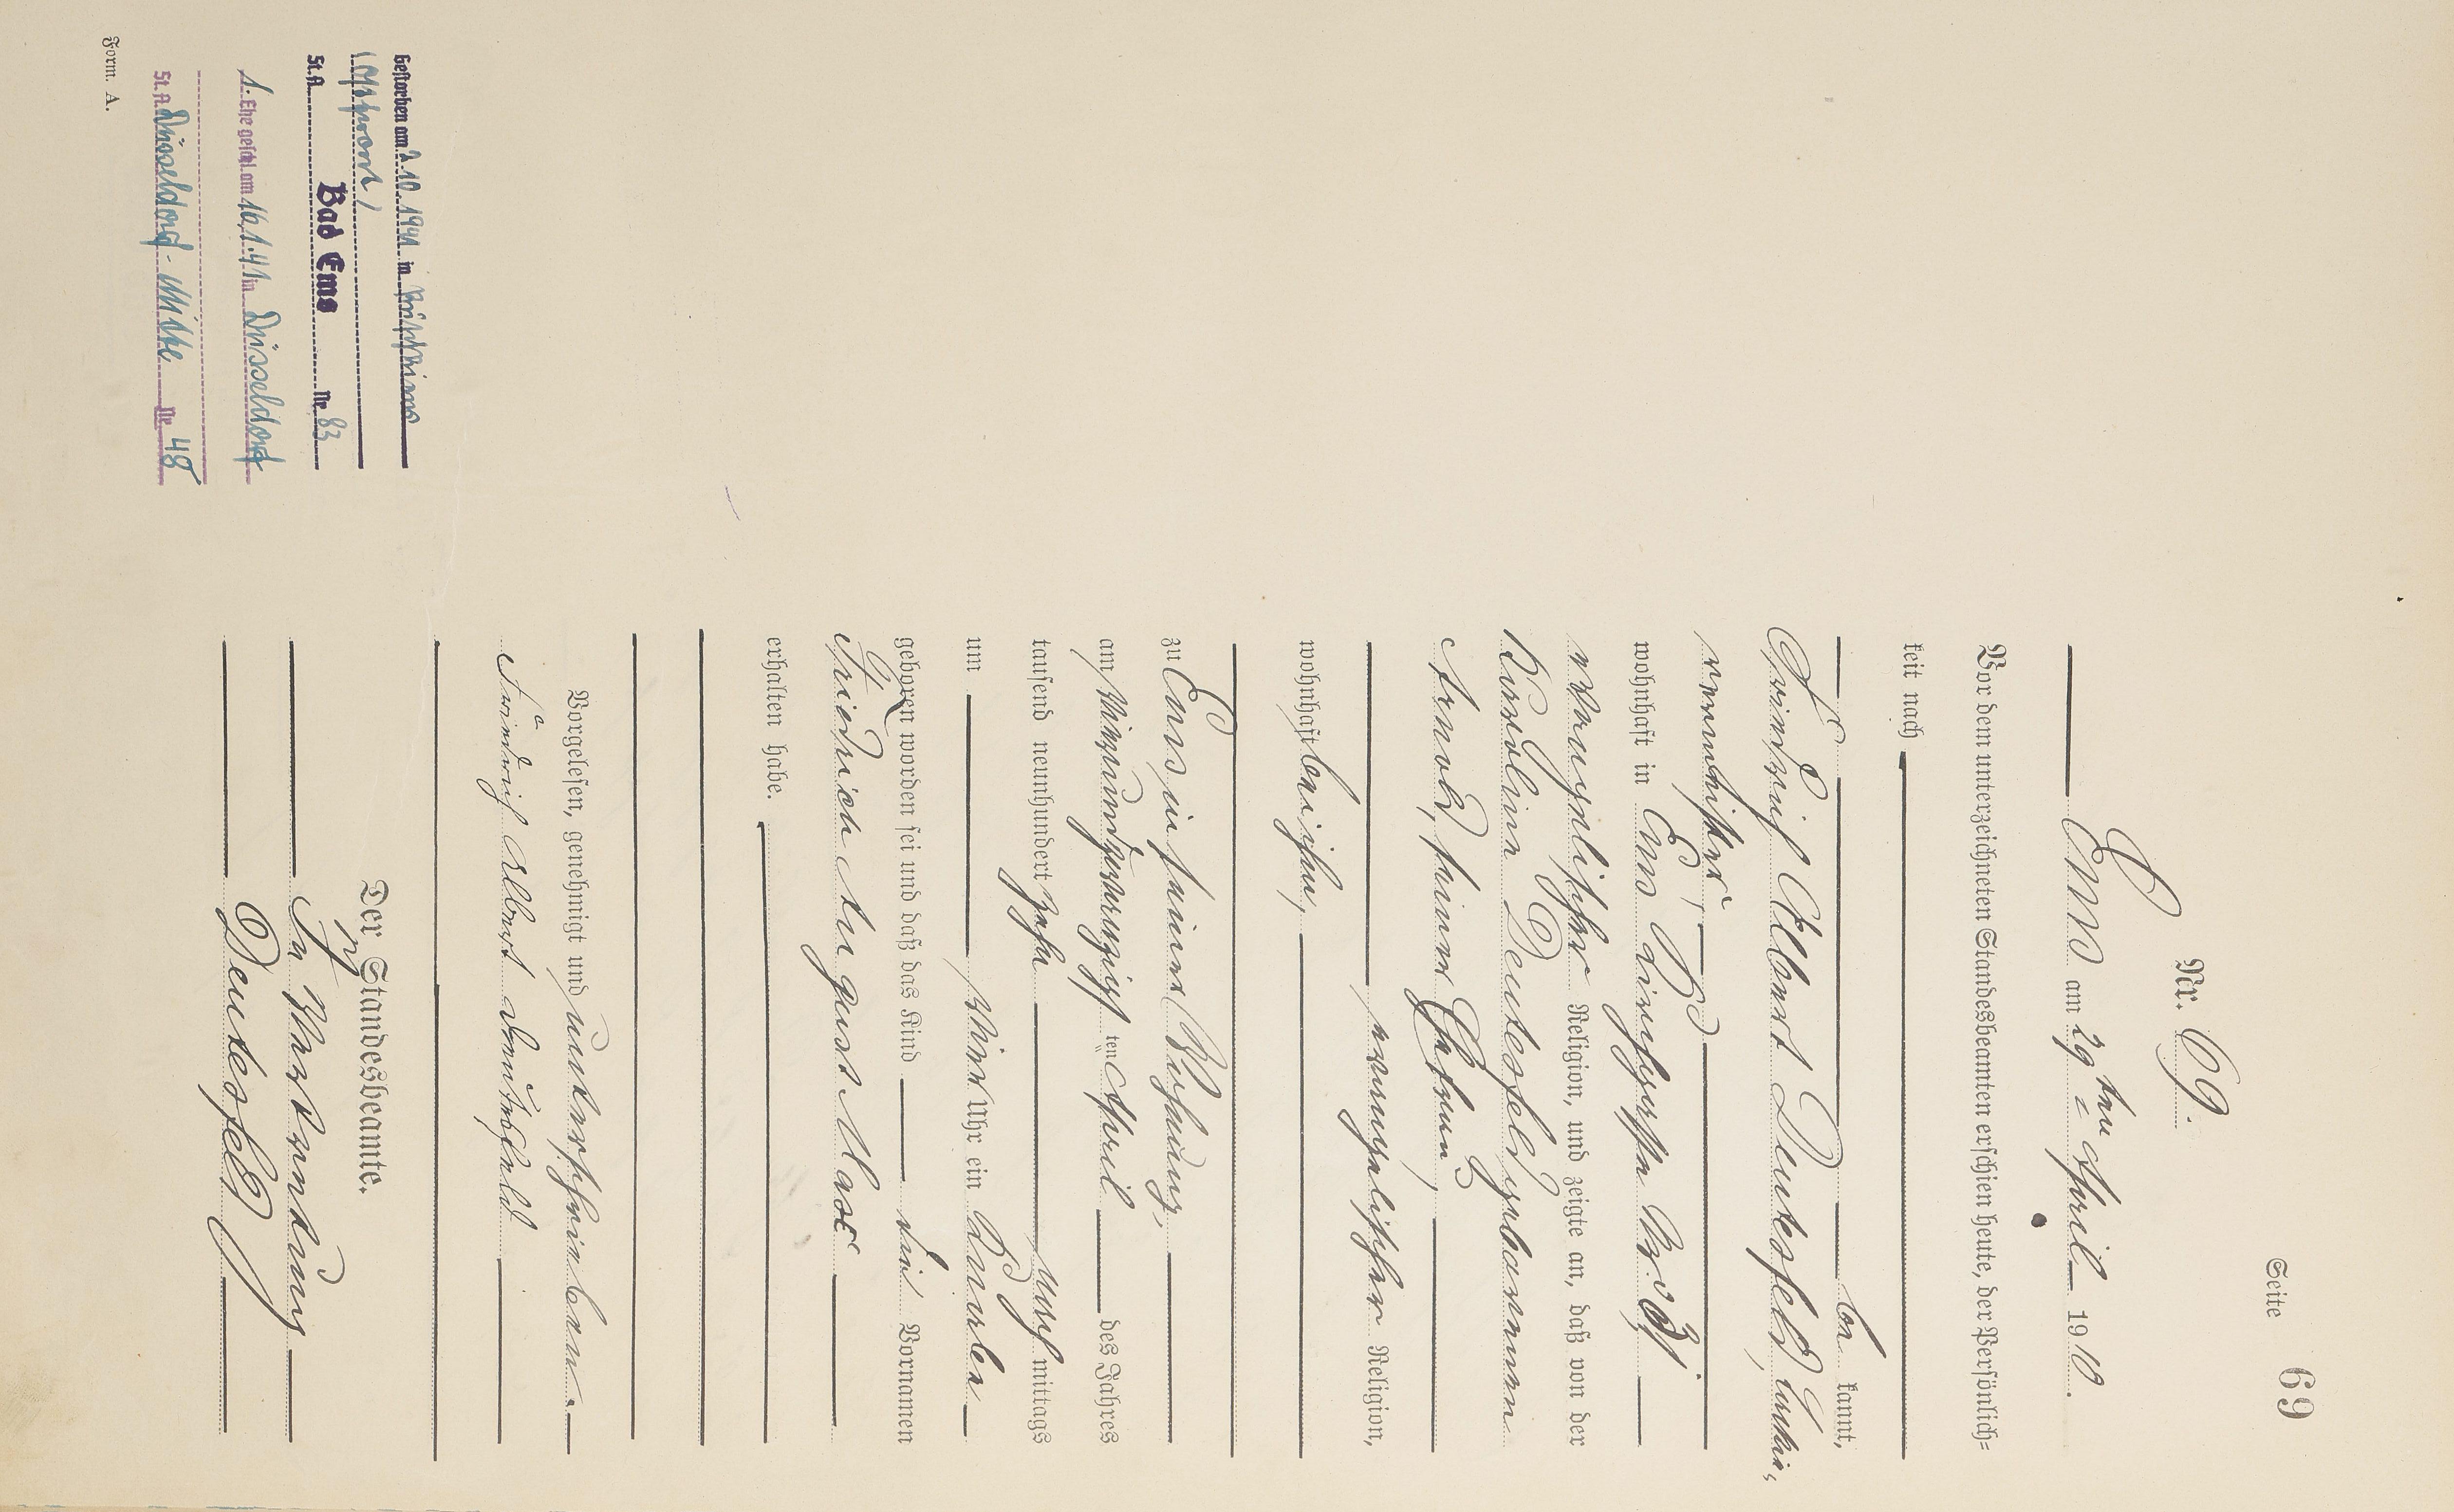 Seite 69
Nr. 69.
Ems am 29ten April 1910.
Vor dem unterzeichneten Standesbeamten erschien heute, der Persönlich-
keit nach
be kannt,
Friedrich Albert Deutesfeld,
wohnhaft in Ems, Nr. 31
evangelischer Religion, und zeigte an, daß von der
Karoline Deutesfeld geborenen
Arnold, seiner Ehefrau,
evangelischer Religion,
wohnhaft bei ihm,
zu Ems in seiner Wohnung,
am vierundzwanzigsten April des Jahres
tausend neunhundert zehn nach mittags
um vier Uhr ein Knabe
geboren worden sei und daß das Kind die Vornamen
Friedrich August Max
erhalten habe.
Vorgelesen, genehmigt und unterschrieben.
Friedrich Albert Deutesfeld
Der Standesbeamte.
In Vertretung
Deutesfeld
Gestorben am 2.10.1941 in
St.A. Bad Ems Nr. 83
1. Ehe geschl. am 16.1.41 in Düsseldorf
St.A. Düsseldorf-Mitte Nr. 48
Form. A.